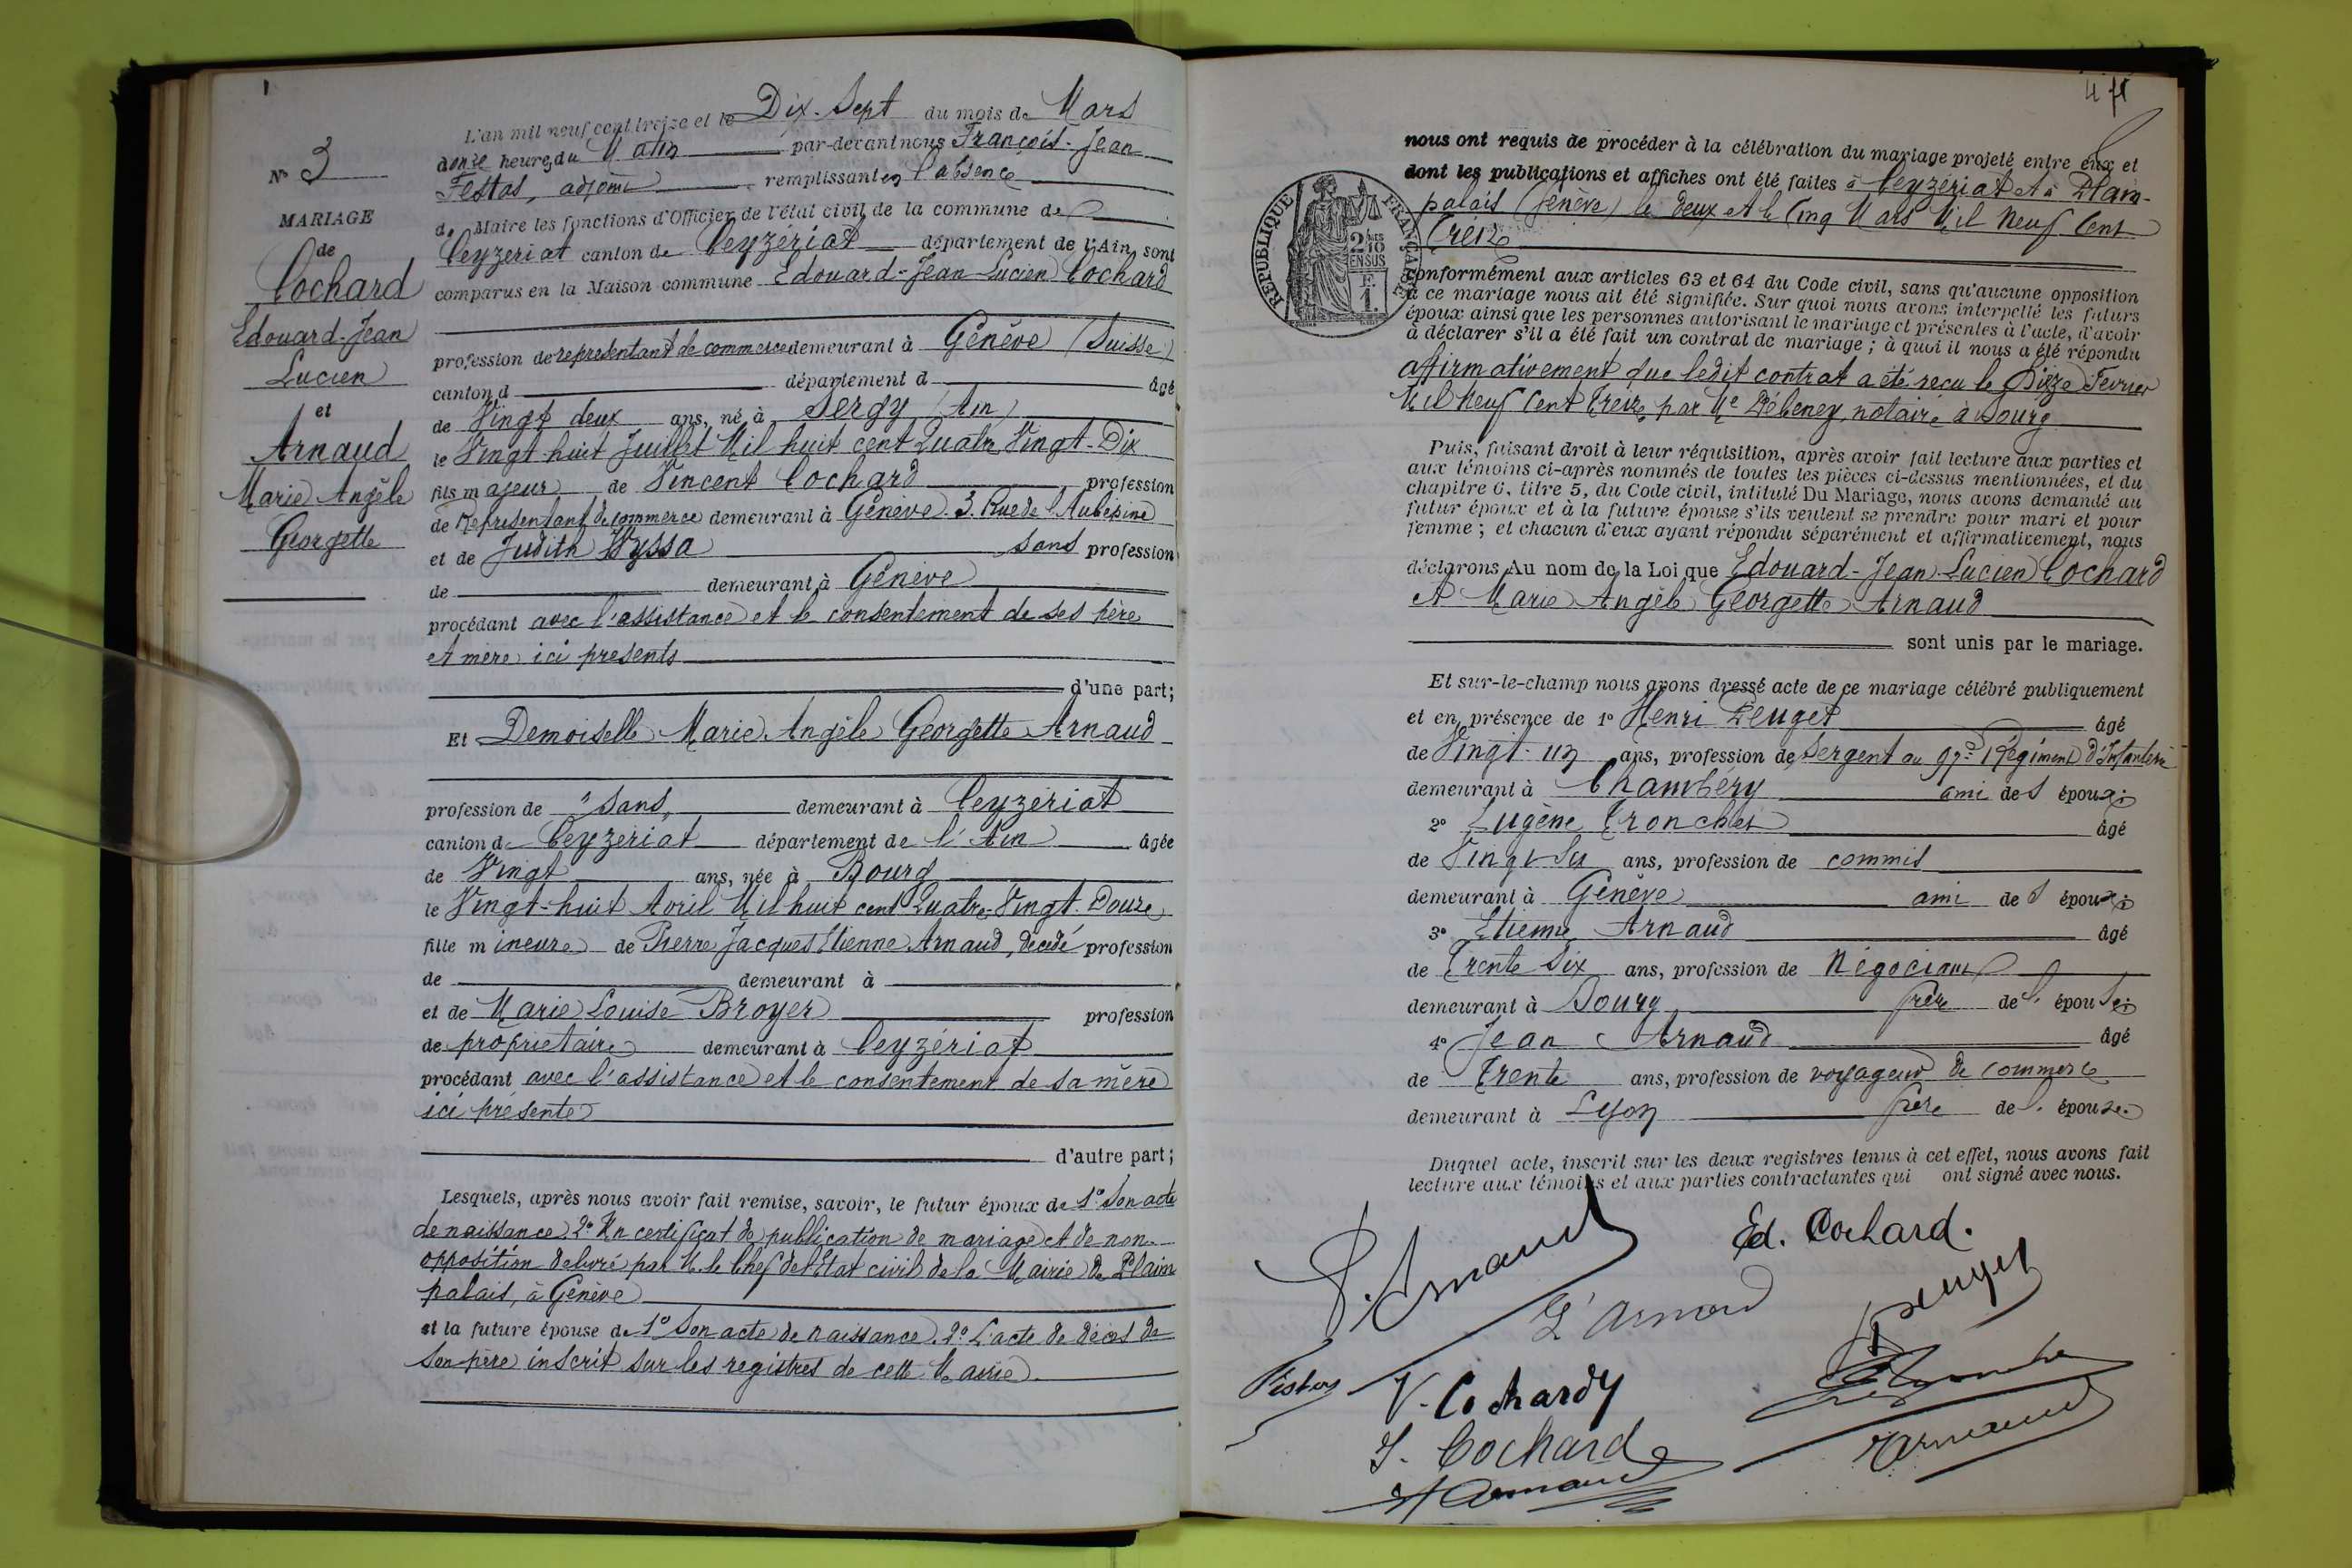 N° 3
MARIAGE
de
Cochard
Edouard-Jean
Lucien
et
Arnaud
Marie Angèle
Georgette
L'an mil neuf cent treize et le Dix-Sept du mois de Mars
heures du Matin par-devant nous François-Jean
Festas, adjoint remplissant en l'absence
de Maire les fonctions d'Officier de l'état civil de la commune de
Ceyzériat canton de Ceyzériat département de l'Ain, sont
comparus en la Maison commune Edouard-Jean-Lucien Cochard
profession de representant de commerce demeurant à Genève (Suisse)
canton d département d âgé
de Vingt deux ans, né à Sergy (Ain)
le Vingt-huit Juillet Mil huit cent Quatre Vingt-Dix
fils majeur de Vincent Cochard profession
de Representant de commerce demeurant à Genève 3. Rue de l'Aubépine
et de Judith Wyssa sans profession
de demeurant à Genève
procédant avec l'assistance et le consentement de ses père
et mère ici presents
d'une part;
Et Demoiselle Marie Angèle Georgette Arnaud
profession de "sans" demeurant à Ceyzériat
canton de Ceyzériat département de l'Ain âgée
de Vingt ans, née à Bourg
le Vingt-huit Avril Mil huit cent Quatre-Vingt-Douze
fille mineure de Pierre Jacques Etienne Arnaud, décédé profession
de demeurant à
et de Marie Louise Broyer profession
de propriétaire demeurant à Ceyzériat
procédant avec l'assistance et le consentement de sa mère
ici présente
d'autre part;
Lesquels, après nous avoir fait remise, savoir, le futur époux de 1° Son acte
de naissance 2° Un certificat de publication de mariage et de non
opposition delivré par M. le Chef de l'Etat civil de la Mairie de Plain
palais, à Genève
et la future épouse de 1° Son acte de naissance. 2° L'acte de décès de
son père inscrit sur les registres de cette Mairie.
nous ont requis de procéder à la célébration du mariage projeté entre eux et
dont les publications et affiches ont été faites à Ceyzériat et à Plain-
palais (Genève) le deux et le Cinq Mars Mil Neuf Cent
Treize
RÉPUBLIQUE FRANÇAISE
2/10
EN SUS
F.
1.
conformément aux articles 63 et 64 du Code civil, sans qu'aucune opposition
à ce mariage nous ait été signifiée. Sur quoi nous avons interpellé les futurs
époux ainsi que les personnes autorisant le mariage et présentes à l'acte, d'avoir
à déclarer s'il a été fait un contrat de mariage ; à quoi il nous a été répondu
affirmativement que ledit contrat a été reçu le Fevrier
Mil Neuf Cent Treize par Me Débeney, notaire à Bourg
Puis, faisant droit à leur réquisition, après avoir fait lecture aux parties et
aux témoins ci-après nommés de toutes les pièces ci-dessus mentionnées, et du
chapitre 6, titre 5, du Code civil, intitulé Du Mariage, nous avons demandé au
futur époux et à la future épouse s'ils veulent se prendre pour mari et pour
femme ; et chacun d'eux ayant répondu séparément et affirmativement, nous
déclarons Au nom de la Loi que Edouard-Jean-Lucien Cochard
et Marie Angèle Georgette Arnaud
sont unis par le mariage.
Et sur-le-champ nous avons dressé acte de ce mariage célébré publiquement
et en présence de 1° Henri Peuget âgé
de Vingt-un ans, profession de Sergent au 97e Régiment d'Infanterie
demeurant à Chambéry ami des époux;
2° Eugène Tronchet âgé
de Vingt-Six ans, profession de commis
demeurant à Genève ami des époux;
3° Etienne Arnaud âgé
de Trente Six ans, profession de Négociant
demeurant à Bourg frère de l'épouse;
4° Jean Arnaud âgé
de Trente ans, profession de voyageur de commerce
demeurant à Lyon frère de l'épouse.
Duquel acte, inscrit sur les deux registres tenus à cet effet, nous avons fait
lecture aux témoins et aux parties contractantes qui ont signé avec nous.
Arnaud
Ed. Cochard.
Peuget
Arnaud
Festas
V. Cochard
J. Cochard
Arnaud
Arnaud